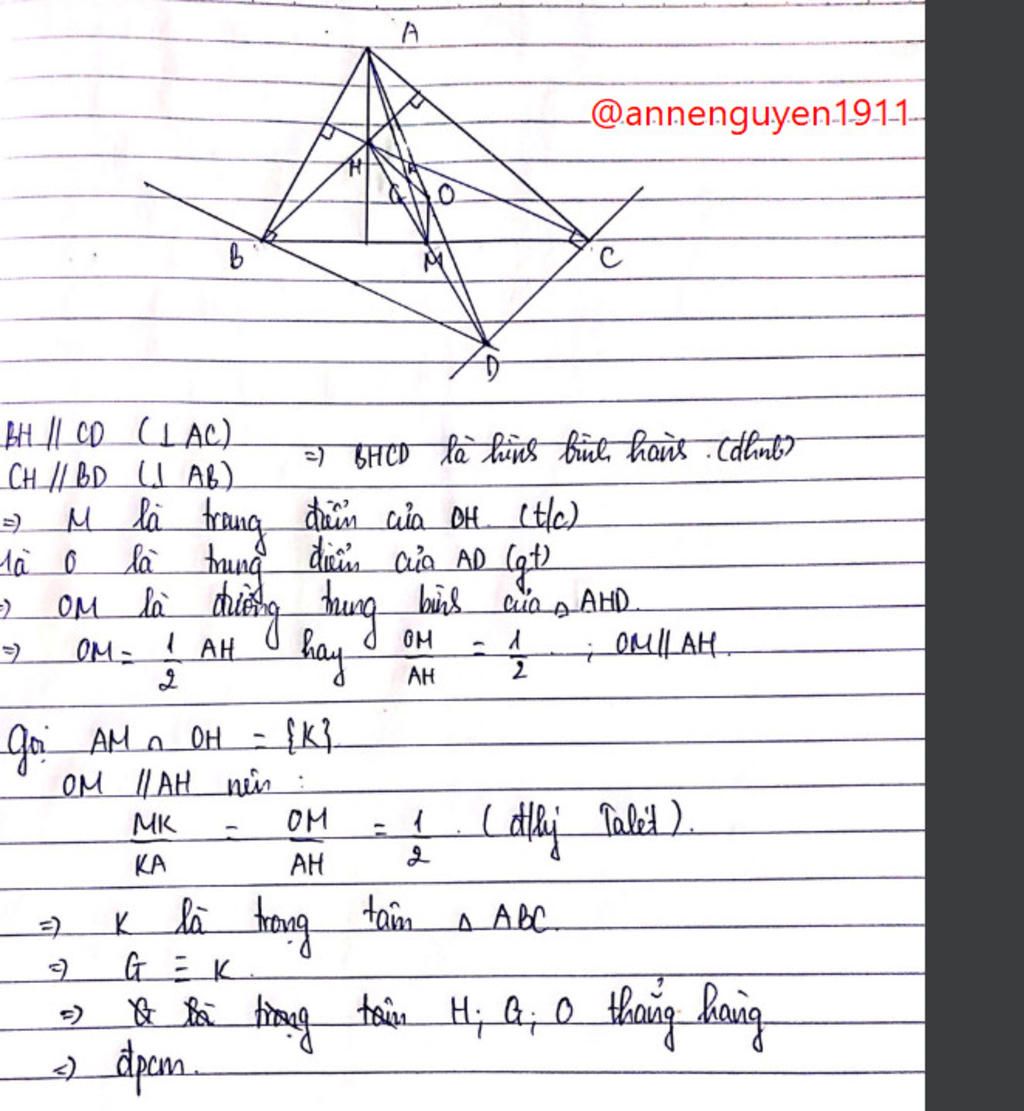 A
@annenguyen1911
H
K
G
O
B
M
C
D
BH // CD (⊥ AC)
CH // BD (⊥ AB)
=> BHCD là hình bình hành. (dhnb)
=> M là trung điểm của DH. (t/c)
Mà O là trung điểm của AD (gt)
=> OM là đường trung bình của △ AHD.
=> OM = 1/2 AH hay OM/AH = 1/2 ; OM // AH.
Gọi AM ∩ OH = {K}
OM // AH nên :
MK/KA = OM/AH = 1/2 . (đ/lý Talét).
=> K là trọng tâm △ ABC.
=> G ≡ K.
=> G là trọng tâm H; G; O thẳng hàng
=> đpcm.